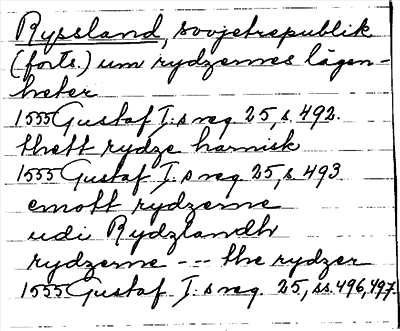 Ryssland, sovjetrepublik
(forts.) um rydzernes lägen-
heter
1555 Gustaf I:s reg. 25, s. 492.
thett rydze harnisk
1555 Gustaf I.s reg. 25, s. 493
emott rydzerne
udi Rydzlandh
rydzerne --- the rydzer
1555 Gustaf I.s reg. 25, ss. 496, 497.